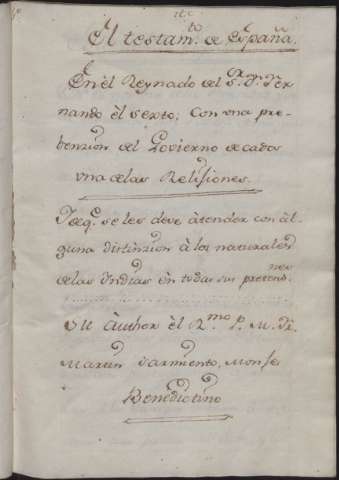 El testam.to de España.
En el Reynado del S.r D.n Fer
nando el Sexto; Con vna pre-
benzion del Govierno de cada
vna de las Relisiones.
Y de q.e se les deve atender con al-
guna distinzion à los naturales
de las Yndias en todas sus pretens.nes
Su Author èl R.mo P. M. Fr.
Martin Sarmiento, Monje
Benedictino